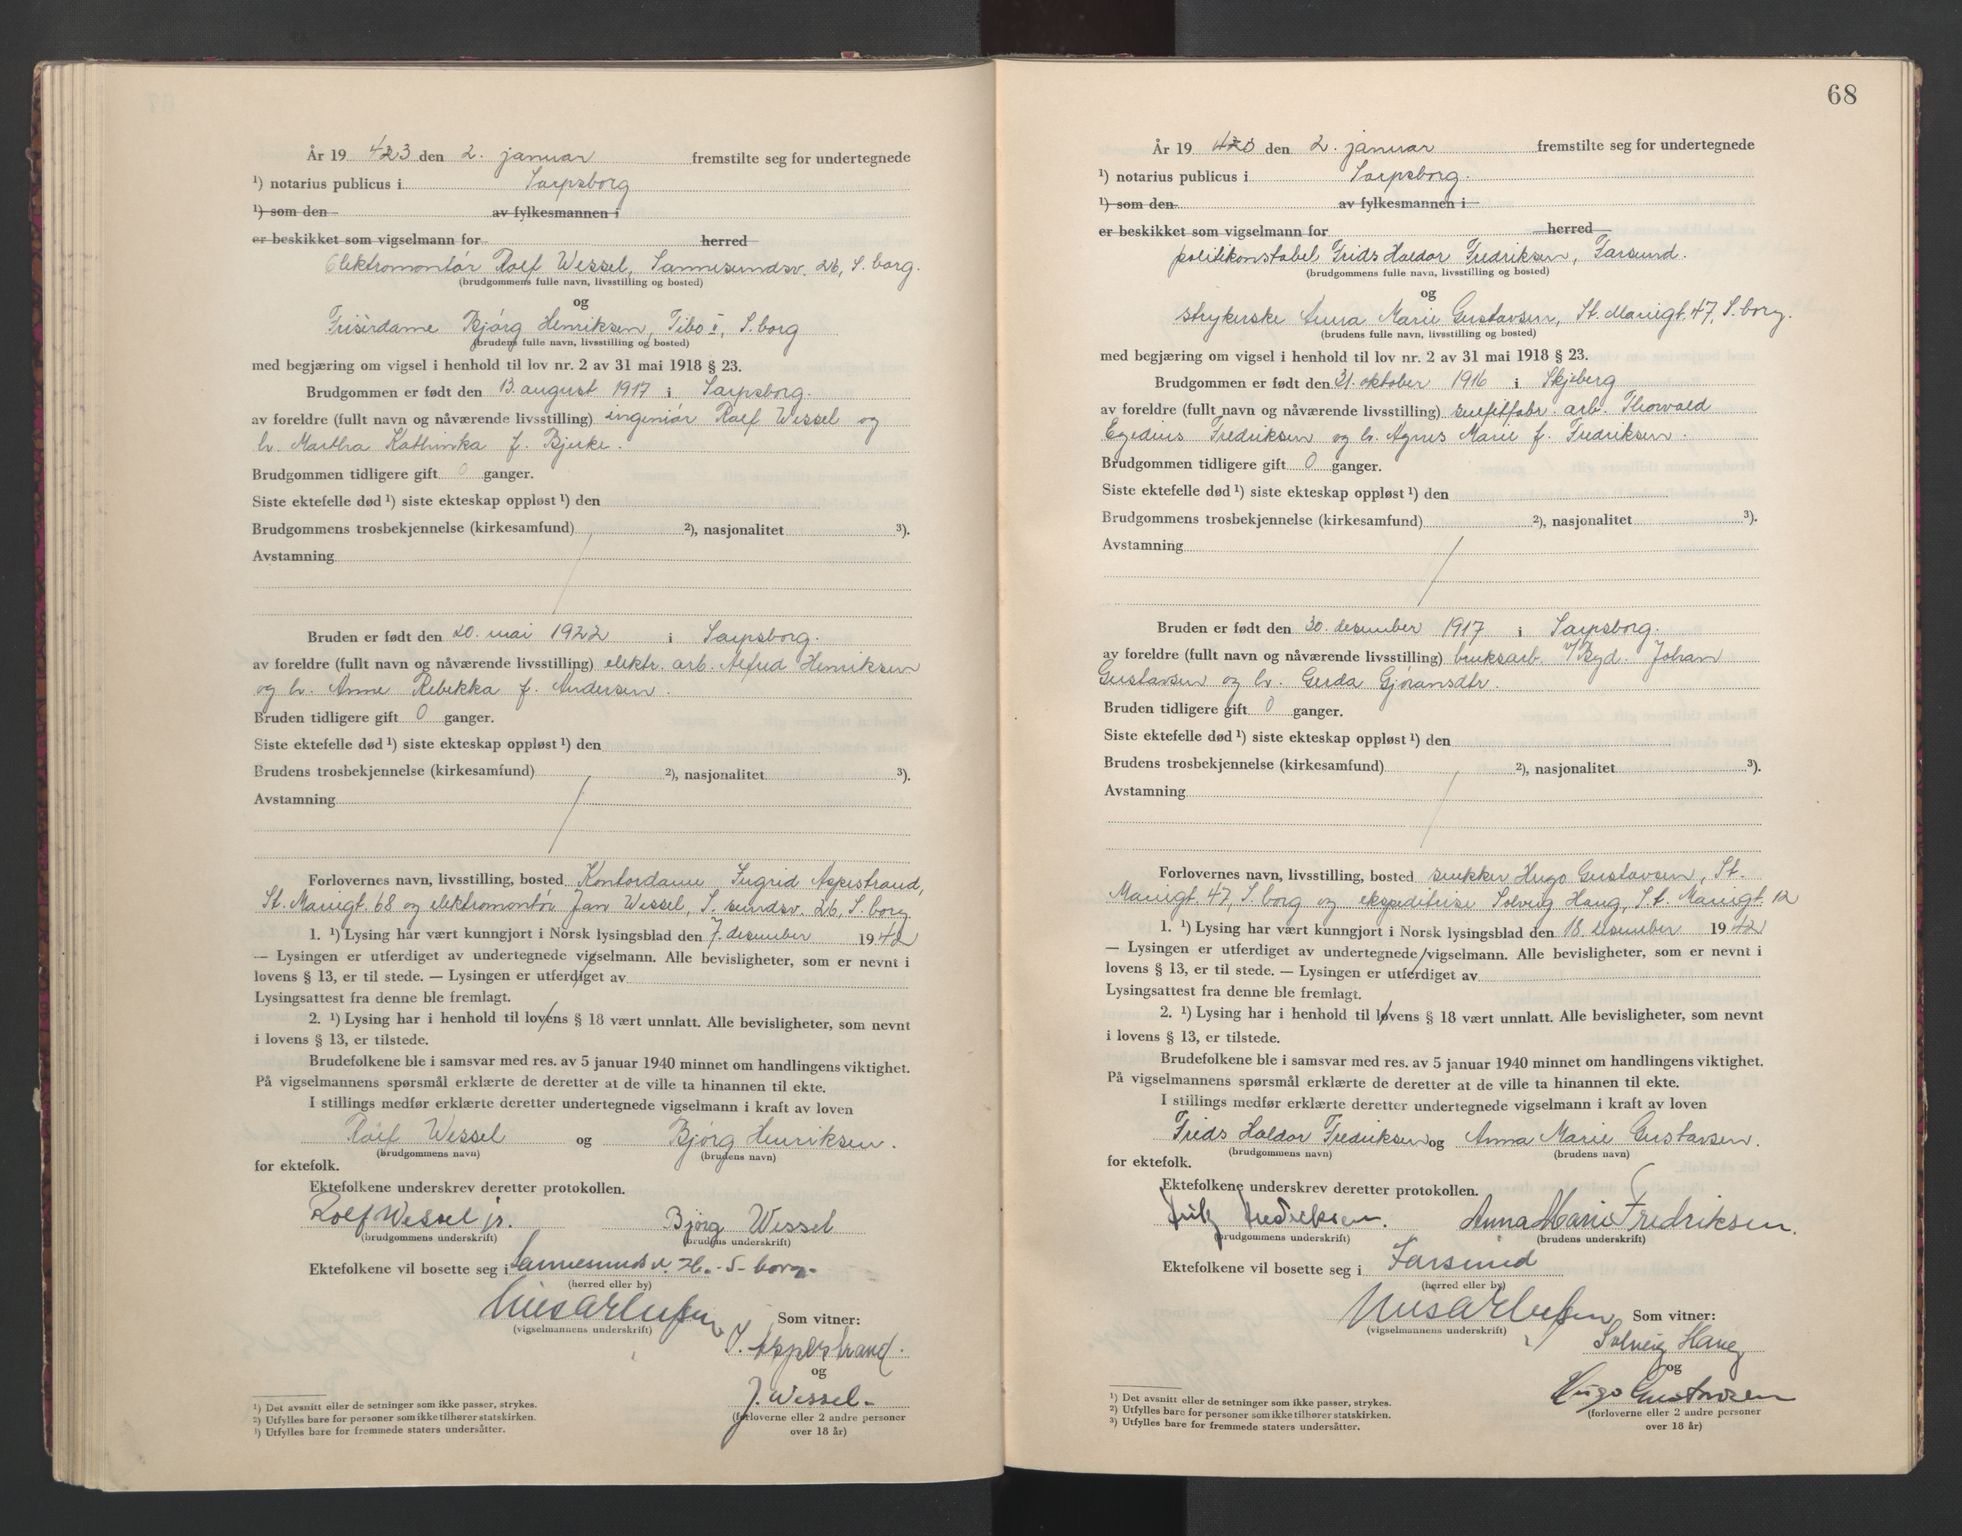 År 19 423 den 2. januar fremstilte seg for undertegnede
¹) notarius publicus i Sarpsborg
¹) som den av fylkesmannen i
er beskikket som vigselmann for herred
Elektromontør Rolf Wessel, Sannesundsv. 26, S.borg.
(brudgommens fulle navn, livsstilling og bosted)
og
Frisørdame Bjørg Henriksen, Tibo I, S.borg
(brudens fulle navn, livsstilling og bosted)
med begjæring om vigsel i henhold til lov nr. 2 av 31 mai 1918 § 23.
Brudgommen er født den 13. august 1917 i Sarpsborg.
av foreldre (fullt navn og nåværende livsstilling) ingeniør Rolf Wessel og
h. Martha Kathinka f. Bjerke.
Brudgommen tidligere gift 0 ganger.
Siste ektefelle død ¹) siste ekteskap oppløst ¹) den
Brudgommens trosbekjennelse (kirkesamfund) ²), nasjonalitet ³).
Avstamning
Bruden er født den 20. mai 1922 i Sarpsborg.
av foreldre (fullt navn og nåværende livsstilling) elektr. arb. Alfred Henriksen
og h. Anne Rebekka f. Andersen.
Bruden tidligere gift 0 ganger.
Siste ektefelle død ¹) siste ekteskap oppløst ¹) den
Brudens trosbekjennelse (kirkesamfund) ²), nasjonalitet ³).
Avstamning
Forlovernes navn, livsstilling, bosted Kontordame Ingrid Aspestrand,
St. Mariegt. 68 og elektromontør Jan Wessel, S.sundsv. 26, S.borg
1. ¹) Lysing har vært kunngjort i Norsk lysingsblad den 7. desember 1942
— Lysingen er utferdiget av undertegnede vigselmann. Alle bevisligheter, som er nevnt i
lovens § 13, er til stede. — Lysingen er utferdiget av
Lysingsattest fra denne ble fremlagt.
2. ¹) Lysing har i henhold til lovens § 18 vært unnlatt. Alle bevisligheter, som nevnt
i lovens § 13, er tilstede.
Brudefolkene ble i samsvar med res. av 5 januar 1940 minnet om handlingens viktighet.
På vigselmannens spørsmål erklærte de deretter at de ville ta hinannen til ekte.
I stillings medfør erklærte deretter undertegnede vigselmann i kraft av loven
Rolf Wessel og Bjørg Henriksen.
(brudgommens navn) (brudens navn)
for ektefolk.
Ektefolkene underskrev deretter protokollen.
Rolf Wessel jr. Bjørg Wessel
(brudgommens underskrift) (brudens underskrift)
Ektefolkene vil bosette seg i Sannesunds v. 26. - S-borg-
(herred eller by)
Som vitner:
(vigselmannens underskrift)
I. Aspestrand.
og
J. Wessel-
(forloverne eller 2 andre personer
over 18 år)
¹) Det avsnitt eller de setninger som ikke passer, strykes.
²) Utfylles bare for personer som ikke tilhører statskirken.
³) Utfylles bare for fremmede staters undersåtter.
68
År 19 420 den 2. januar fremstilte seg for undertegnede
¹) notarius publicus i Sarpsborg.
¹) som den av fylkesmannen i
er beskikket som vigselmann for herred
politikonstabel Frids Haldor Fredriksen, Farsund.
(brudgommens fulle navn, livsstilling og bosted)
og
strykerske Anna Marie Gustavsen, St. Mariegt. 47, S.borg.
(brudens fulle navn, livsstilling og bosted)
med begjæring om vigsel i henhold til lov nr. 2 av 31 mai 1918 § 23.
Brudgommen er født den 31. oktober 1916 i Skjeberg
av foreldre (fullt navn og nåværende livsstilling) sulfitfabr. arb. Thorvald
Egedius Fredriksen og h. Agnes Marie f. Fredriksen.
Brudgommen tidligere gift 0 ganger.
Siste ektefelle død ¹) siste ekteskap oppløst ¹) den
Brudgommens trosbekjennelse (kirkesamfund) ²), nasjonalitet ³).
Avstamning
Bruden er født den 30. desember 1917 i Sarpsborg.
av foreldre (fullt navn og nåværende livsstilling) bruksarb. v/Byd. Johan
Gustavsen og h. Gerda Gjøransdtr.
Bruden tidligere gift 0 ganger.
Siste ektefelle død ¹) siste ekteskap oppløst ¹) den
Brudens trosbekjennelse (kirkesamfund) ²), nasjonalitet ³).
Avstamning
Forlovernes navn, livsstilling, bosted snekker Hugo Gustavsen, St.
Mariegt. 47, S.borg og ekspeditrise Solveig Haug, St. Mariegt. 12
1. ¹) Lysing har vært kunngjort i Norsk lysingsblad den 18. desember 1942
— Lysingen er utferdiget av undertegnede vigselmann. Alle bevisligheter, som er nevnt i
lovens § 13, er til stede. — Lysingen er utferdiget av
Lysingsattest fra denne ble fremlagt.
2. ¹) Lysing har i henhold til lovens § 18 vært unnlatt. Alle bevisligheter, som nevnt
i lovens § 13, er tilstede.
Brudefolkene ble i samsvar med res. av 5 januar 1940 minnet om handlingens viktighet.
På vigselmannens spørsmål erklærte de deretter at de ville ta hinannen til ekte.
I stillings medfør erklærte deretter undertegnede vigselmann i kraft av loven
Frids Haldor Fredriksen og Anna Marie Gustavsen.
(brudgommens navn) (brudens navn)
for ektefolk.
Ektefolkene underskrev deretter protokollen.
Fredriksen. Anna Marie Fredriksen.
(brudgommens underskrift) (brudens underskrift)
Ektefolkene vil bosette seg i Farsund
(herred eller by)
Som vitner:
(vigselmannens underskrift)
Solveig Haug
og
Hugo Gustavsen
(forloverne eller 2 andre personer
over 18 år)
¹) Det avsnitt eller de setninger som ikke passer, strykes.
²) Utfylles bare for personer som ikke tilhører statskirken.
³) Utfylles bare for fremmede staters undersåtter.